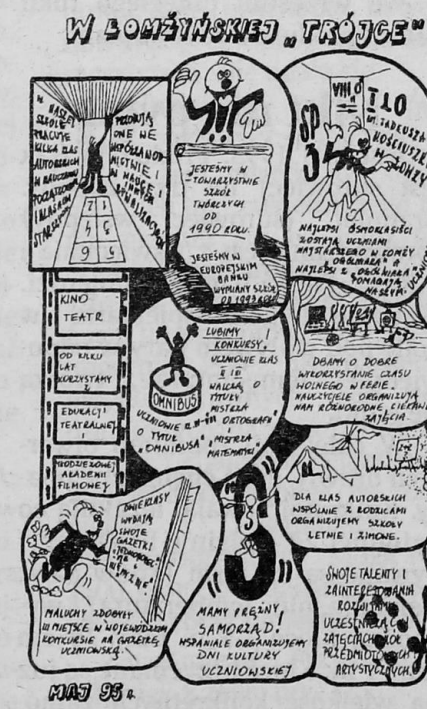 W ŁOMŻYŃSKIEJ „TRÓJCE"
W NASZEJ
SZKOLE
PRACUJE
KILKA KLAS
AUTORSKICH
W NAUCZANIU
POCZĄTKOWYM
I KLASACH
STARSZYCH
PRÓBUJĄ
ONE WE
WSPÓŁZAWOD
NICTWIE I
W NAUCE I
1 2
3 4
5 6
JESTEŚMY W
TOWARZYSTWIE
SZKÓŁ
TWÓRCZYCH
OD
1990 ROKU.
JESTEŚMY W
EUROPEJSKIM
BANKU
WYMIANY SZKÓŁ
OD 1993 ROKU
SP
3
VIII
I LO
IM. TADEUSZA
KOŚCIUSZKI
W ŁOMŻY
NAJLEPSI ÓSMOKLASIŚCI
ZOSTAJĄ UCZNIAMI
NAJSTARSZEGO W ŁOMŻY
„OGÓLNIAKA" A
NAJLEPSI Z „OGÓLNIAKA"
POMAGAJĄ
NASZYM
UCZNIOM
KINO
TEATR
OD KILKU
LAT
KORZYSTAMY
Z
EDUKACJI
TEATRALNEJ
I
MŁODZIEŻOWEJ
AKADEMII
FILMOWEJ
LUBIMY
KONKURSY.
UCZNIOWIE KLAS
II III
WALCZĄ O
TYTUŁY
„MISTRZA
ORTOGRAFII"
„MISTRZA
MATEMATYKI"
OMNIBUS
UCZNIOWIE KL. IV-VIII
O TYTUŁ
„OMNIBUSA"
DBAMY O DOBRE
WYKORZYSTANIE CZASU
WOLNEGO W FERIE.
NAUCZYCIELE ORGANIZUJĄ
NAM RÓŻNORODNE, CIEKAWE
ZAJĘCIA.
DLA KLAS AUTORSKICH
WSPÓLNIE Z RODZICAMI
ORGANIZUJEMY SZKOŁY
LETNIE I ZIMOWE.
DWIE KLASY
WYDAJĄ
SWOJE
GAZETKI
MALUCHY ZDOBYŁY
III MIEJSCE W WOJEWÓDZKIM
KONKURSIE NA GAZETKĘ
UCZNIOWSKĄ.
3
MAMY PRĘŻNY
SAMORZĄD!
WSPANIALE ORGANIZUJEMY
DNI KULTURY
UCZNIOWSKIEJ
SWOJE TALENTY I
ZAINTERESOWANIA
ROZWIJAMY
UCZESTNICZĄC W
ZAJĘCIACH KÓŁ
PRZEDMIOTOWYCH I
ARTYSTYCZNYCH.
MAJ 95 r.